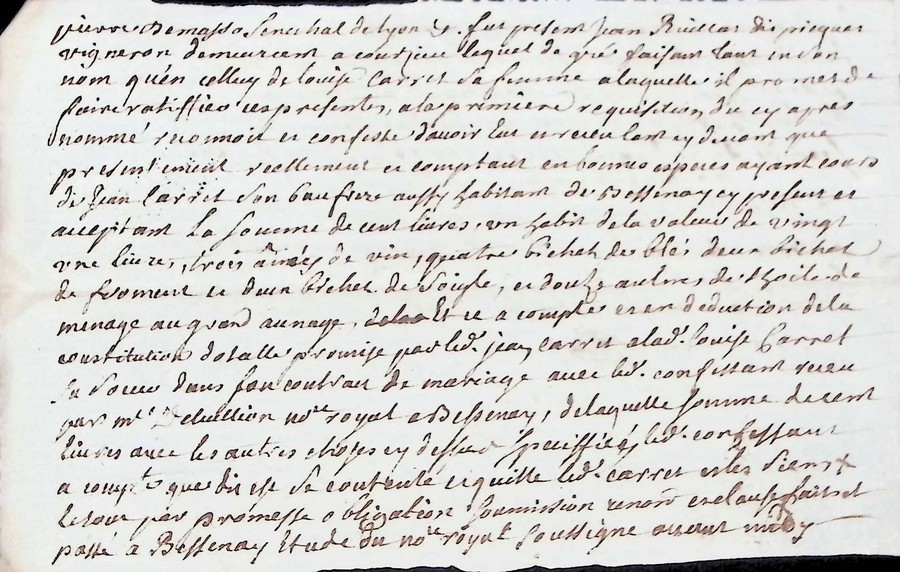 pierre Demasso Senechal de lyon &. fut present Jean
vigneron demeurant a courzieu lequel de gré faisant tant en son
nom qu'en celluy de louise Carret sa femme a laquelle il promet de
faire ratiffier ces presentes, a la premiere requisition, du cy apres
nommé reconnoit et confesse d'avoir eut et receu tant cy devant que
presentement reellement et comptant en bonnes especes ayant cours
de Jean Carret son baufrere aussy habitant de Bessenay cy present et
acceptant la somme de cent livres, un habit de la valeur de vingt
une livre, trois anées de vin, quatre bichet de blés deux bichet
de froment et deux bichet de seigle, et douze autres de thoile de
menage au grand aunage, Et ce a compte et en deduction de la
constitution dotalle promise par led. jean carret a lad. louise Carret
sa soeur dans son contrat de mariage avec led. confessant receu
par me. notre royal a Bessenay, de laquelle somme de cent
livres avec les autres choses cy dessus speciffiées led. confessant
a compte que dit est se contente et quitte led. carret et les siens
le tout par promesse obligation soumission renon et clause fait et
passé a Bessenay Etude du notre royal soussigne avant midy